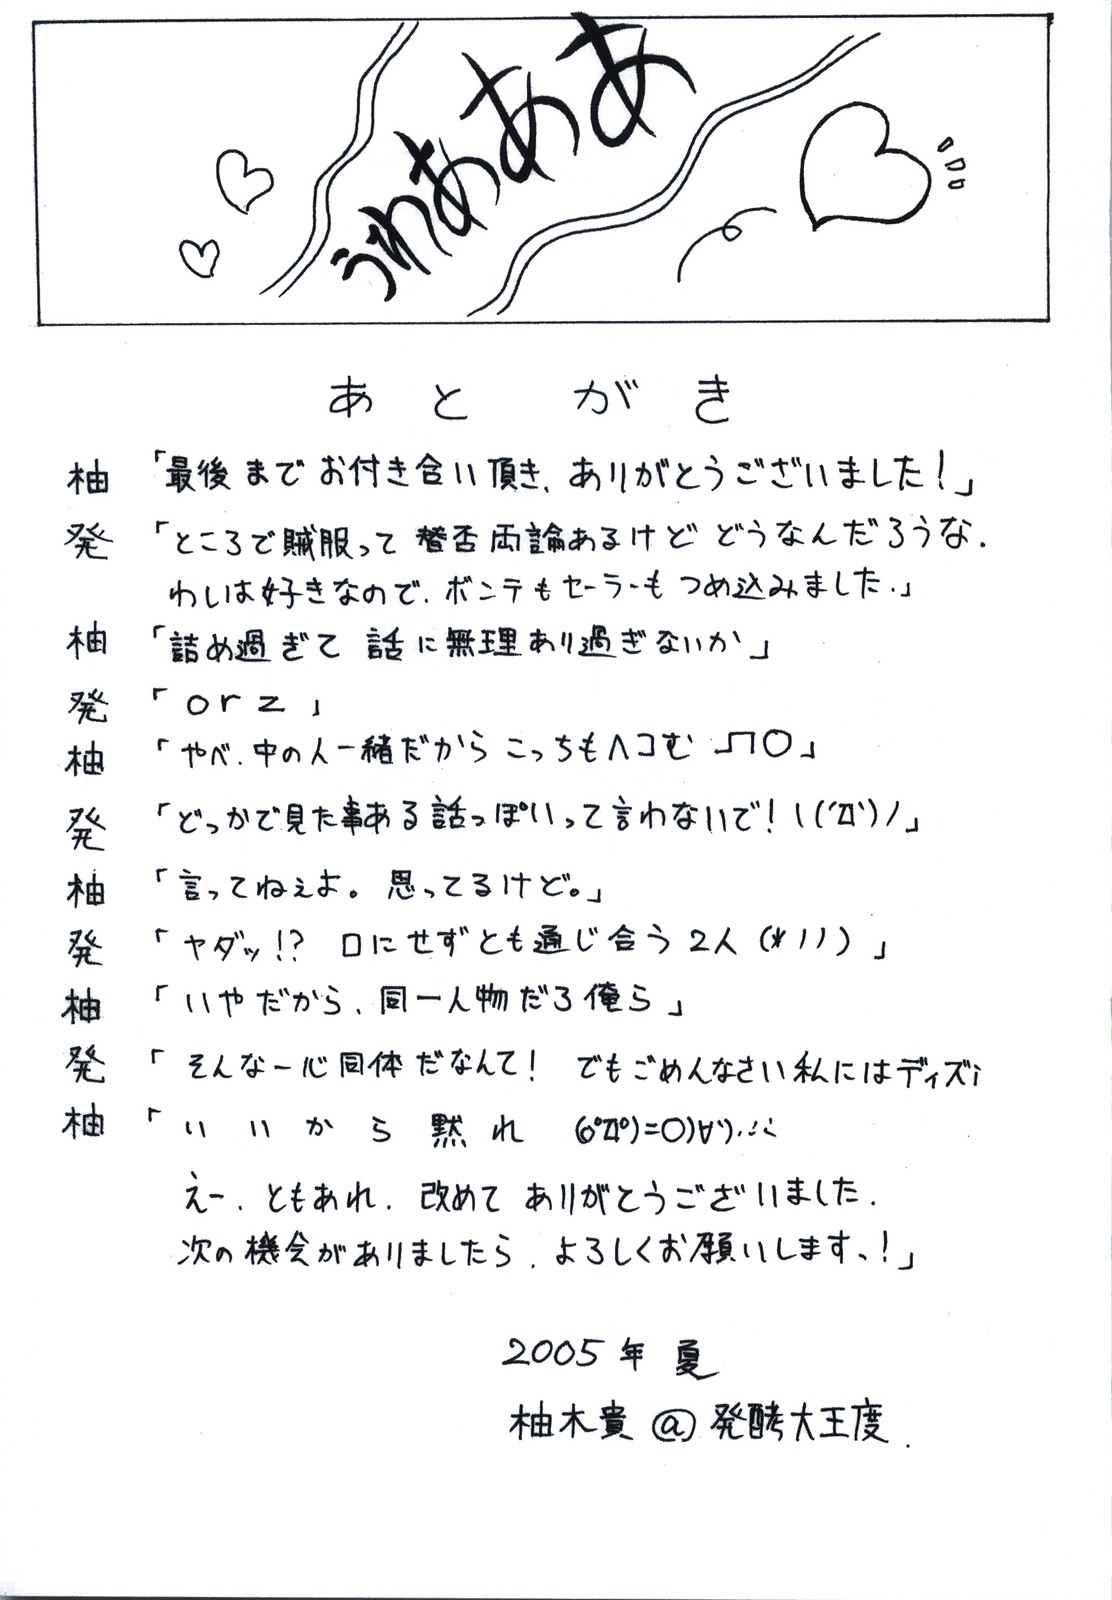 うわあああ
あとがき
柚「最後までお付き合い頂き、ありがとうございました!」
発「ところで賊服って賛否両論あるけどどうなんだろうな.
わしは好きなので.ボンテもセーラーもつめ込みました.」
柚「詰め過ぎて 話に無理あり過ぎないか」
発「orz」
柚「やべ.中の人一緒だからこっちもヘコむ _| ̄|○」
発「どっかで見た事ある話っぽいって言わないで!\(´Д`)ノ」
柚「言ってねぇよ。思ってるけど。」
発「ヤダッ!? 口にせずとも通じ合う2人(*ノノ)」
柚「いやだから、同一人物だろ俺ら」
発「そんな一心同体だなんて! でもごめんなさい私にはディズi
柚「いいから黙れ (o゚Д゚)=○)∀`).∴
えー.ともあれ.改めてありがとうございました.
次の機会がありましたら.よろしくお願いします、!」
2005年 夏
柚木貴@発酵大王度.